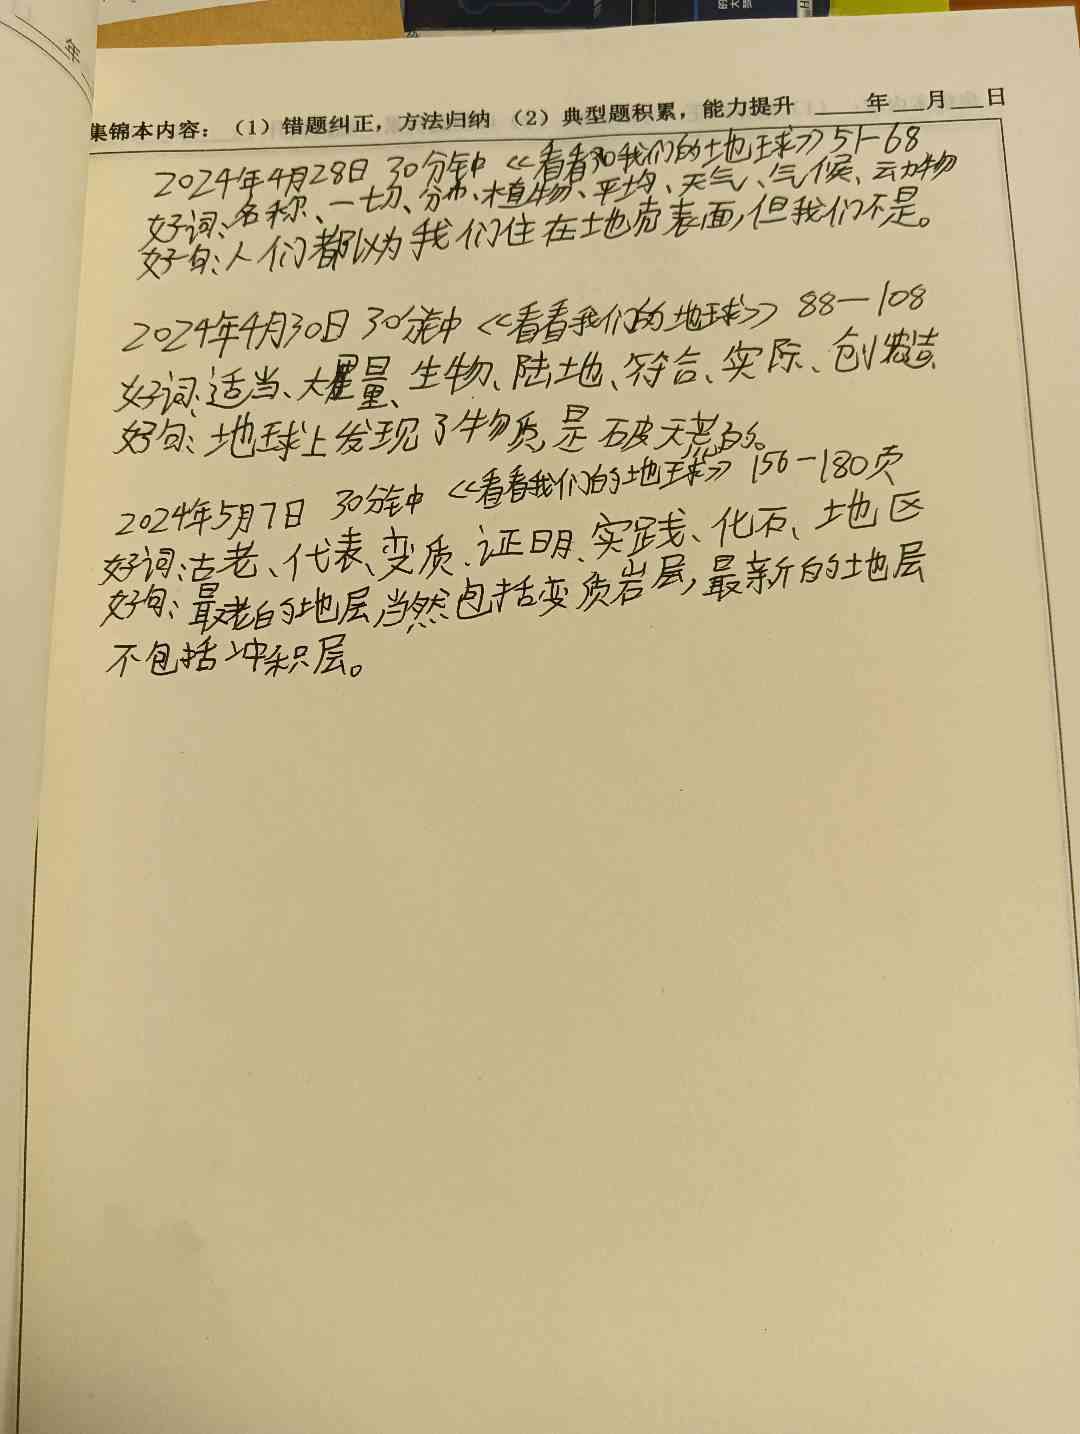 年
集锦本内容：（1）错题纠正，方法归纳 （2）典型题积累，能力提升 ____年___月___日
2024年4月28日 30分钟 《看看我们的地球》51-68
好词：名称、一切、分布、植物、平均、天气、气候、动物
好句：人们都以为我们住在地壳表面，但我们不是。
2024年4月30日 30分钟 《看看我们的地球》 88—108
好词：适当、大量、生物、陆地、符合、实际、创造、
好句：地球上发现了生物质，是石破天荒的。
2024年5月7日 30分钟 《看看我们的地球》 156-180页
好词：古老、代表、变质、证明、实践、化石、地区
好句：最老的地层当然包括变质岩层，最新的地层
不包括冲积层。